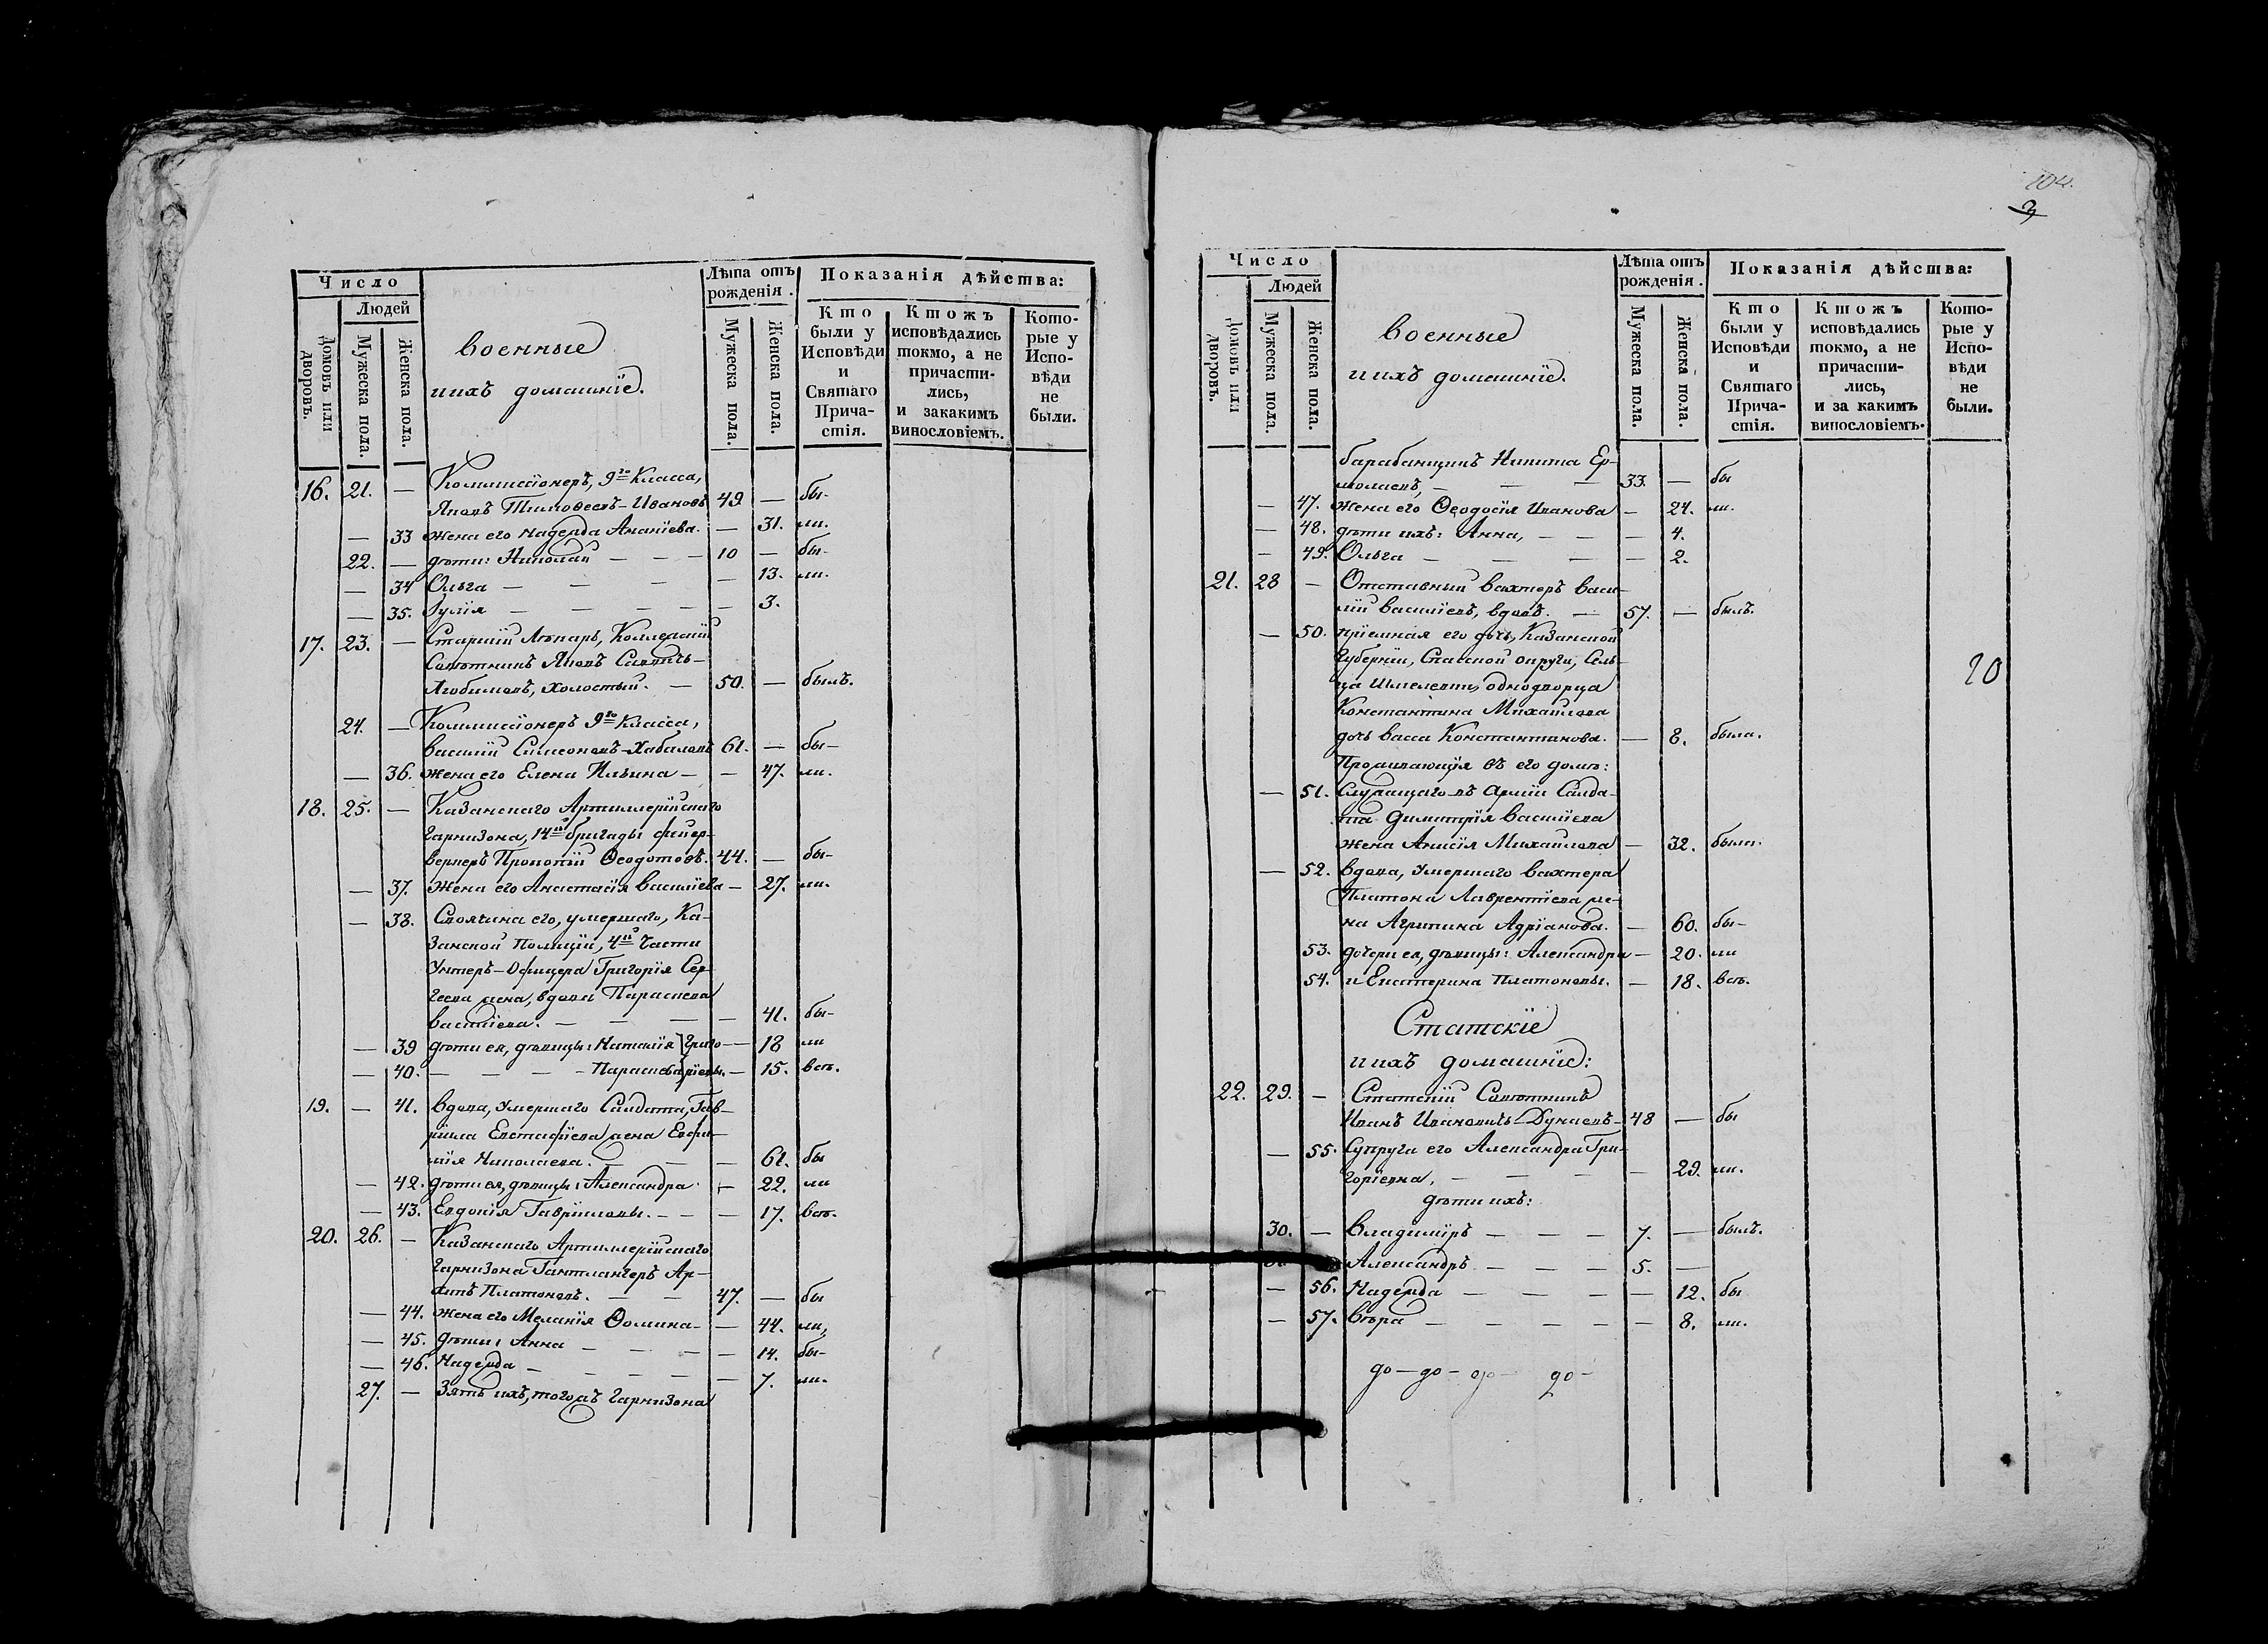 Число
Людей
Домовъ или дворовъ.
Мужеска пола.
Женска пола.
военные
и ихъ домашнїе.
Лѣта отъ рожденія.
Мужеска пола.
Женска пола.
Показанія дѣйства:
Кто были у Исповѣди и Святаго Причастія.
Ктожъ исповѣдались токмо, а не причастились, и закакимъ винословіемъ.
Которые у Исповѣди не были.
16. 21. — Коммиссіонеръ, 9го Класса,
Яковъ Тимоѳеевъ-Ивановъ 49 — бы-
— 33 жена его Надежда Ананїева. — 31. ли.
22. — дѣти: Николай — — — 10 — бы-
— 34 Ольга — — — — 13. ли.
— 35. Юлїя — — — — — 3.
17. 23. — Старшїй Лѣкарь, Коллежскїй
Совѣтникъ Яковъ Саввичъ-
Любимовъ, холостый. — 50. — былъ.
24. — Коммиссїонеръ 9го класса,
Василїй Симеоновъ-Хабаловъ 61. — бы-
— 36. жена его Елена Ильина — — 47. ли.
18. 25. — Казанскаго Артиллерїйскаго
Гарнизона, 14й бригады фейер-
веркеръ Прокопїй Ѳеодотовъ. 44. — бы-
— 37. Жена его Анастасїя Василїева — 27. ли.
— 38. Своячина его, умершаго, Ка-
занской Полицїи, 4й Части
Унтеръ-Офицера Григорїя Сер-
геева жена, вдова Параскева
Василїева. — — — — 41. бы-
— 39 дѣти ея, дѣвицы: Наталїя Григо- — 18 ли
— 40. — — — — Параскева рїевы. — 15. всѣ.
19. — 41. Вдова, Умершаго Салдата, Гав-
рїила Евстафїева жена Евфи-
мїя Николаева. — — — 61. бы
— 42. дѣти ея, дѣвицы: Александра — 22. ли
— 43. Евдокїя Гаврїиловы. — — — 17. всѣ.
20. 26. — Казанскаго Артиллерїйскаго
Гарнизона Гантлангеръ Ар-
Платоновъ. — — 47. — бы
— 44. Жена его Меланїя Ѳомина — — 44. ли,
— 45. Дѣти: Анна — — — — 14. бы-
— 46. Надежда — — — — — 7. ли.
27. — Зять ихъ, тогожъ Гарнизона
104.
3
Число
Людей
Домовъ или дворовъ.
Мужеска пола.
Женска пола.
военные
и ихъ домашнїе.
Лѣта отъ рожденія.
Мужеска пола.
Женска пола.
Показанія дѣйства:
Кто были у Исповѣди и Святаго Причастія.
Ктожъ исповѣдались токмо, а не причастились, и за какимъ винословіемъ.
Которые у Исповѣди не были.
барабанщикъ Никита Ер-
молаевъ, — — — 33. — бы
— 47. жена его Ѳеодосїя Иванова — 24. ли.
— 48. дѣти ихъ: Анна, — — — 4.
— 49. Ольга — — — — 2.
21. 28 — Отставный вахтеръ Васи-
лїй Василїевъ, вдовъ. — 57. — былъ.
— 50. прїемная его дочь, Казанской
Губернїи, Спасской округи, Сель-
ца однодворца
Константина Михайлова
дочь Васса Константинова. — 8. была.
20
Проживающїя въ его домѣ:
— 51. Служащаго въ Армїи Салда-
та Димитрїя Василїева
жена Анисїя Михайлова — 32. была.
— 52. Вдова, Умершаго Вахтера
Платона Лаврентїева же-
на Агрипина Адрїанова. — 60. бы-
53. дочери ея, дѣвицы: Александра — 20. ли
54. и Екатерина Платоновы. — 18. всѣ.
Статскїе
и ихъ домашнїе:
22. 29. — Статскїй Совѣтникъ
Иванъ Ивановичъ-Дунаевъ- 48 — бы
— 55. Супруга его Александра Гри-
горїевна, — — — — 29. ли.
дѣти ихъ:
30. — Владимїръ — — — 7. — былъ.
Александръ — — — 5. —
— 56. Надежда — — — — 12. бы
— 57. Вѣра — — — — — 8. ли.
до — до — до — до —